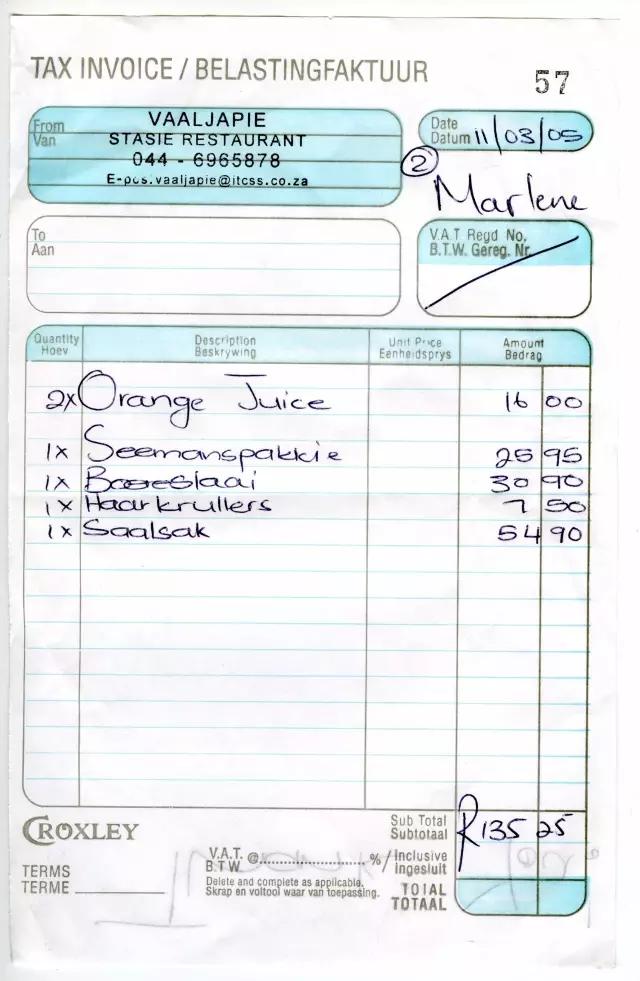 TAX INVOICE / BELASTINGFAKTUUR
57
From
Van
VAALJAPIE
STASIE RESTAURANT
044 - 6965878
E-pos.vaaljapie@itcss.co.za
Date
Datum 11/03/05
2
Marlene
To
Aan
V.A.T Regd No.
B.T.W. Gereg. Nr.
Quantity Description Unit Price Amount
Hoev Beskrywing Eenheidsprys Bedrag
2x Orange Juice 16 00
1x Seemanspakkie 25 95
1x Boereslaai 30 90
1x Haarkrullers 7 50
1x Saalsak 54 90
CROXLEY
Sub Total
Subtotaal
R135 25
V.A.T. @ % / Inclusive
B.T.W. Ingesluit
TERMS
TERME
Delete and complete as applicable.
Skrap en voltooi waar van toepassing.
TOTAL
TOTAAL